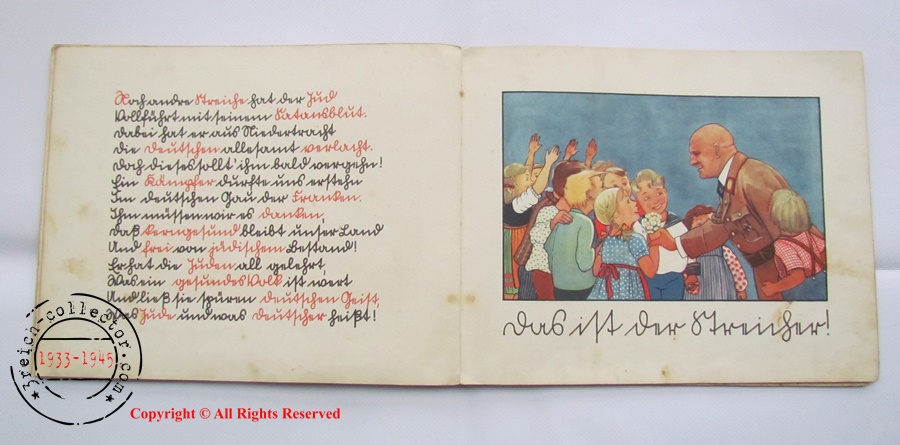 Noch andre Streiche hat der Jud
Vollführt mit seinem Satansblut.
Dabei hat er aus Niedertracht
Die Deutschen allesamt verlacht.
Doch dieses sollt' ihm bald vergehn!
Ein Kämpfer durfte uns erstehn
Im deutschen Gau der Franken.
Ihm müssen wir es danken,
Daß kerngesund bleibt unser Land
Und frei von jüdischem Bestand!
Er hat die Juden all gelehrt,
Was ein gesundes Volk ist wert
Und ließ sie spüren deutschen Geist,
Was Jude und was Deutscher heißt!
Das ist der Streicher!
3reich-collector.com
1933-1945
Copyright © All Rights Reserved